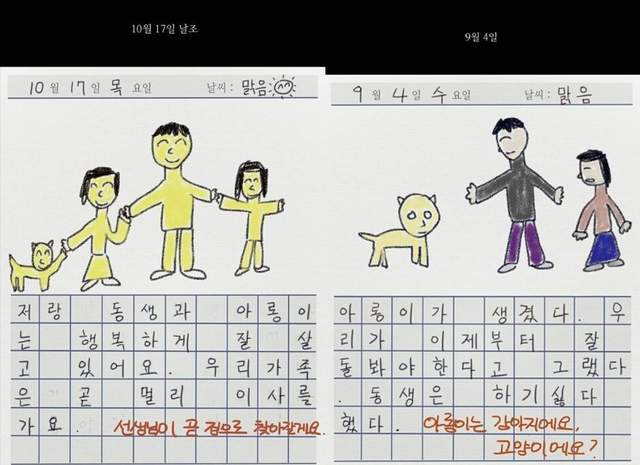 10월 17일 날조
10월 17일 목요일 날씨: 맑음
저랑 동생과 아롱이
는 행복하게 잘 살
고 있어요. 우리가족
은 곧 멀리 이사를
가요.
선생님이 곧 집으로 찾아갈게요.
9월 4일
9월 4일 수요일 날씨: 맑음
아롱이가 생겼다. 우
리가 이제부터 잘
돌봐야한다고 그랬다
. 동생은 하기싫다
했다.
아롱이는 강아지에요,
고양이에요?